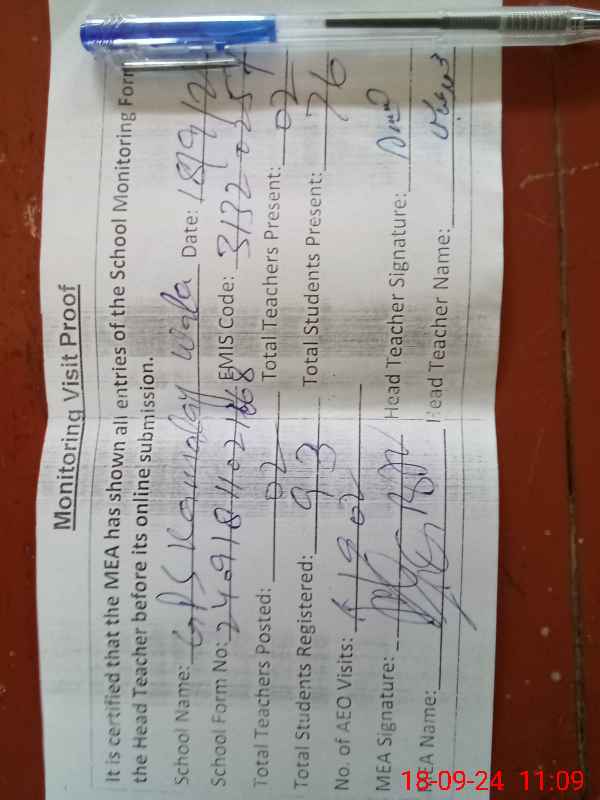 Monitoring Visit Proof
It is certified that the MEA has shown all entries of the School Monitoring Form
the Head Teacher before its online submission.
School Name: GPS Wala Date: 18/9/2
School Form No: EMIS Code:
Total Teachers Posted: 02 Total Teachers Present: 02
Total Students Registered: 93 Total Students Present: 76
No. of AEO Visits: 02
MEA Signature: Head Teacher Signature:
MEA Name: Head Teacher Name:
18-09-24 11:09